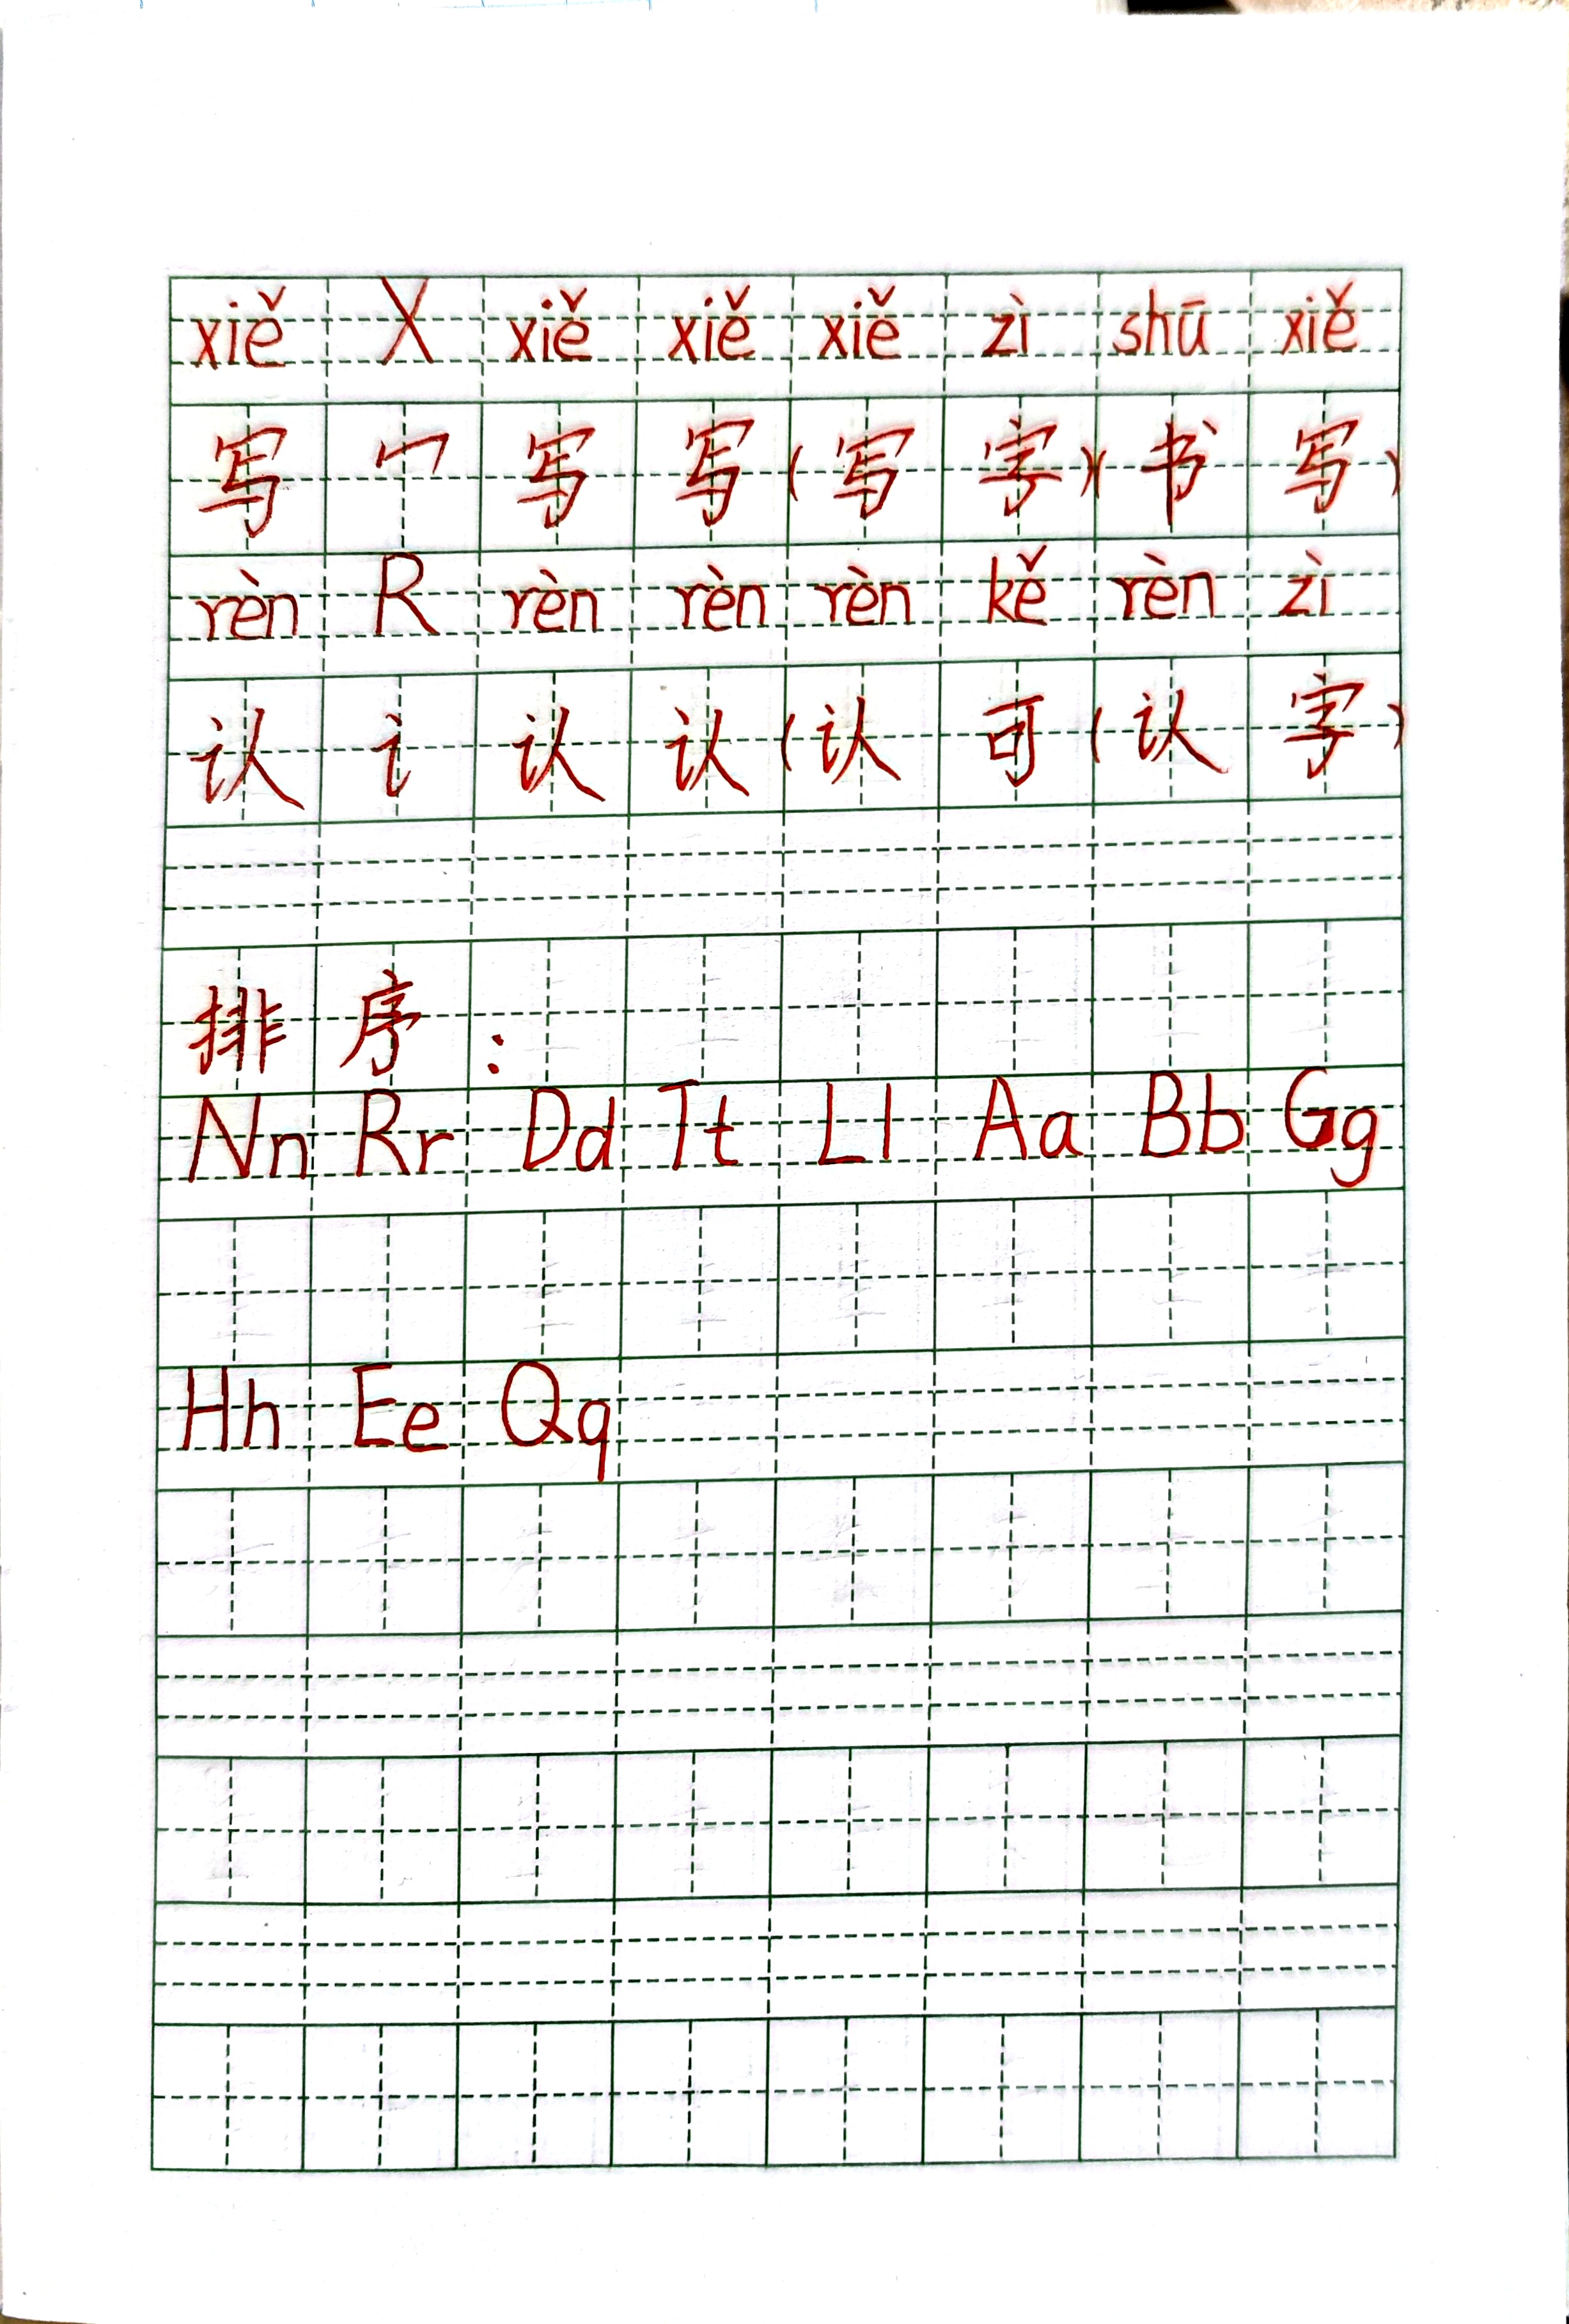 xiě X xiě xiě xiě zì shū xiě
写 冖 写 写 (写 字) (书 写)
rèn R rèn rèn rèn kě rèn zì
认 讠 认 认 (认 可 (认 字)
排 序 :
Nn Rr Dd Tt Ll Aa Bb Gg
Hh Ee Qq